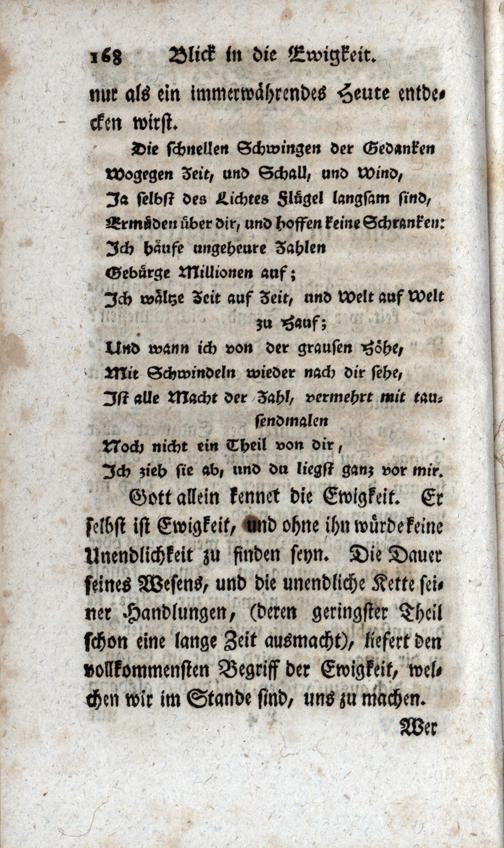 168 Blick in die Ewigkeit.
nur als ein immerwährendes Heute entde-
cken wirst.
Die schnellen Schwingen der Gedanken
Wogegen Zeit, und Schall, und Wind,
Ja selbst des Lichtes Flügel langsam sind,
Ermüden über dir, und hoffen keine Schranken:
Ich häufe ungeheure Zahlen
Gebürge Millionen auf;
Ich wälze Zeit auf Zeit, und Welt auf Welt
zu Hauf;
Und wann ich von der grausen Höhe,
Mit Schwindeln wieder nach dir sehe,
Ist alle Macht der Zahl, vermehrt mit tau-
sendmalen
Noch nicht ein Theil von dir,
Ich zieh sie ab, und du liegst ganz vor mir.
Gott allein kennet die Ewigkeit. Er
selbst ist Ewigkeit, und ohne ihn würde keine
Unendlichkeit zu finden seyn. Die Dauer
seines Wesens, und die unendliche Kette sei-
ner Handlungen, (deren geringster Theil
schon eine lange Zeit ausmacht), liefert den
vollkommensten Begriff der Ewigkeit, wel-
chen wir im Stande sind, uns zu machen.
Wer